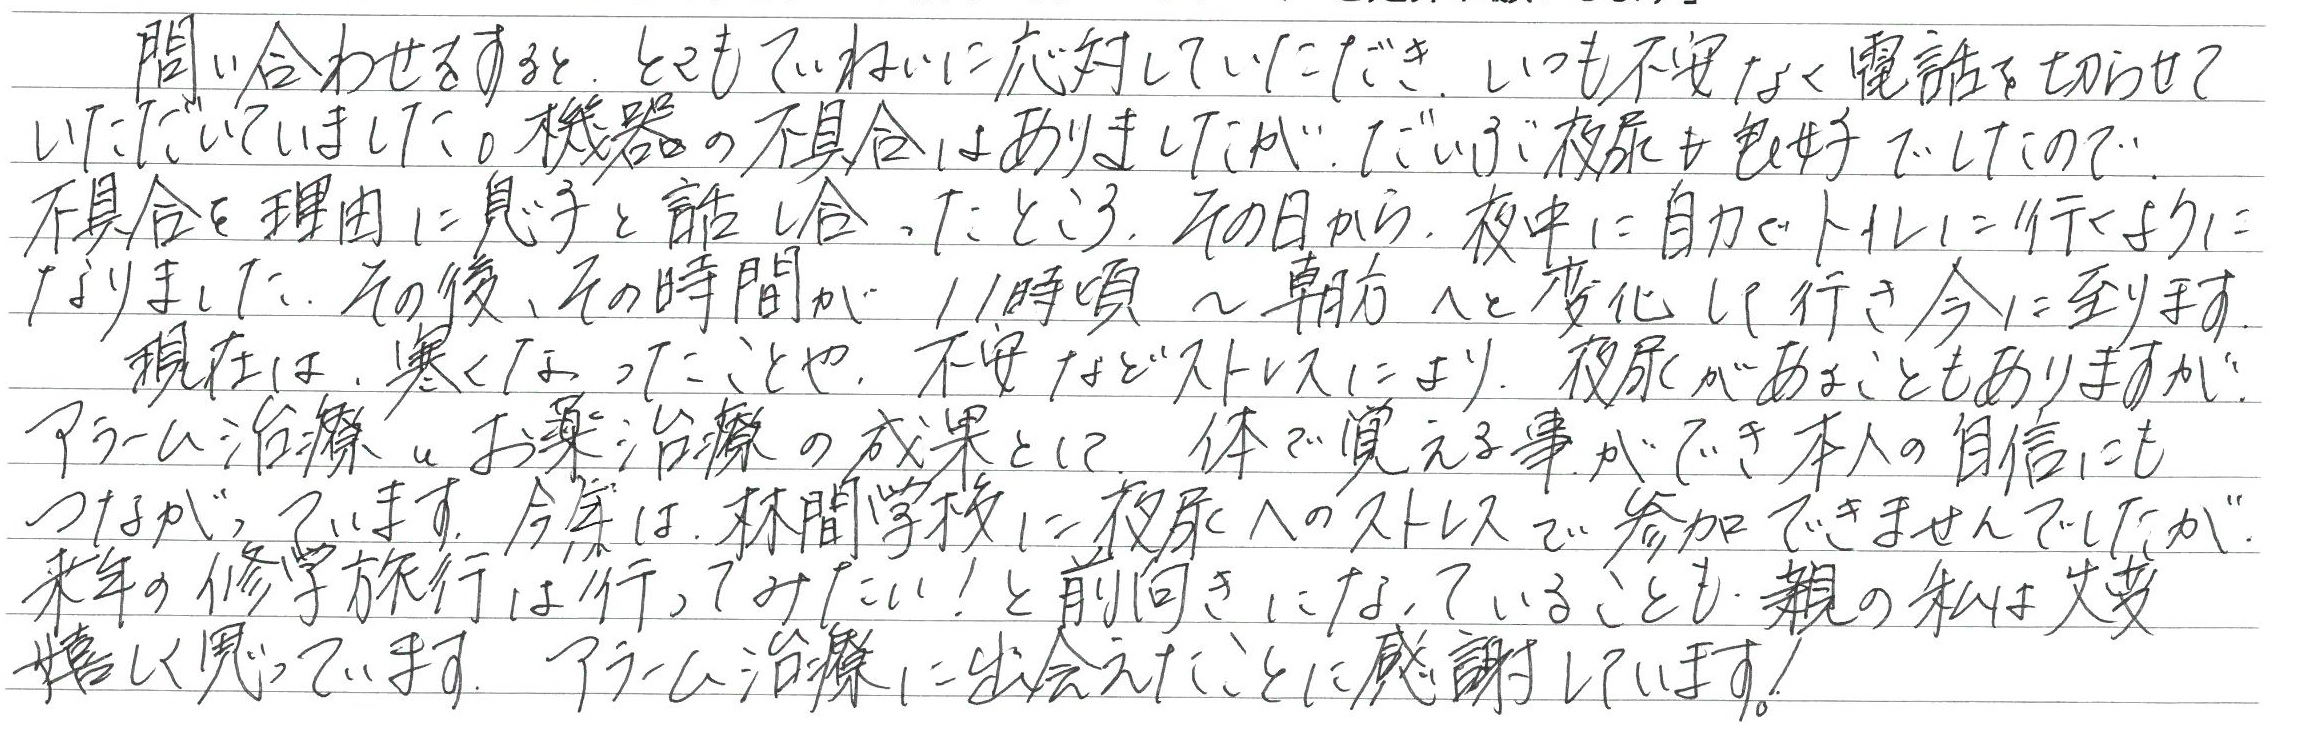 問い合わせをすると、とてもていねいに応対していただき、いつも不安なく電話を切らせて
いただいていました。機器の不具合はありましたが、だいぶ夜尿も良好でしたので、
不具合を理由に息子と話し合ったところ、その日から、夜中に自力でトイレに行くように
なりました。その後、その時間が11時頃〜朝方へと変化して行き今に至ります。
現在は、寒くなったことや、不安などストレスにより、夜尿があることもありますが、
アラーム治療、お薬治療の成果として、体で覚える事ができ本人の自信にも
つながっています。今年は、林間学校に夜尿へのストレスで参加できませんでしたが、
来年の修学旅行は行ってみたい!と前向きになっていることも、親の私は大変
嬉しく思っています。アラーム治療に出会えたことに感謝しています!